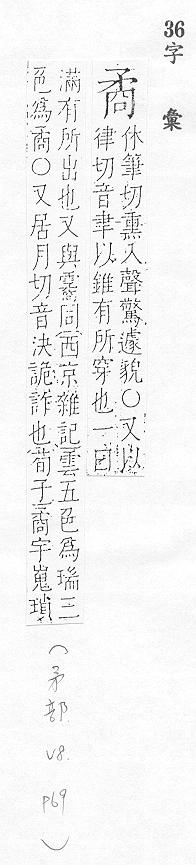 36
字彙
矞
休筆切熏入聲驚遽貌○又以
律切音聿以錐有所穿也一曰
滿有所出也又與霱同西京雜記雲五色爲瑞三
色爲矞○又居月切音決詭詐也荀子矞宇嵬瑣
(矛部 V8. P69)